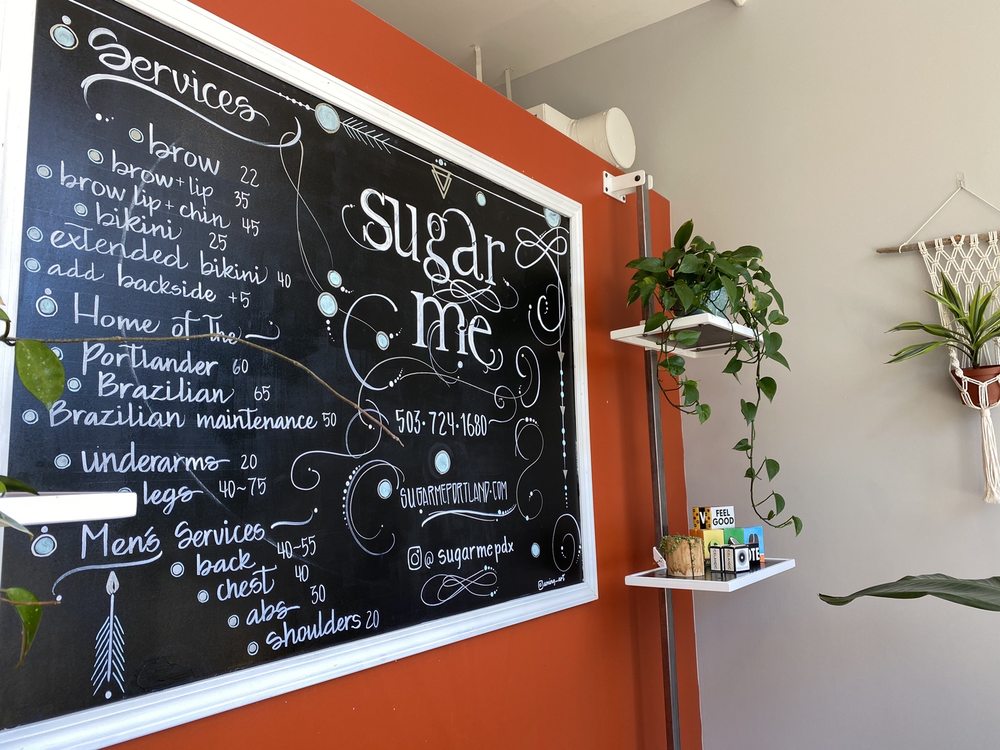 Services
brow 22
brow + lip 35
brow lip + chin 45
bikini 25
extended bikini 40
add backside +5
Home of The
Portlander 60
Brazilian 65
Brazilian maintenance 50
underarms 20
legs 40~75
Men's Services
back 40-55
chest 40
abs 30
shoulders 20
sugar
me
503·724·1680
SUGARMEPORTLAND.COM
@sugarmepdx
FEEL
GOOD